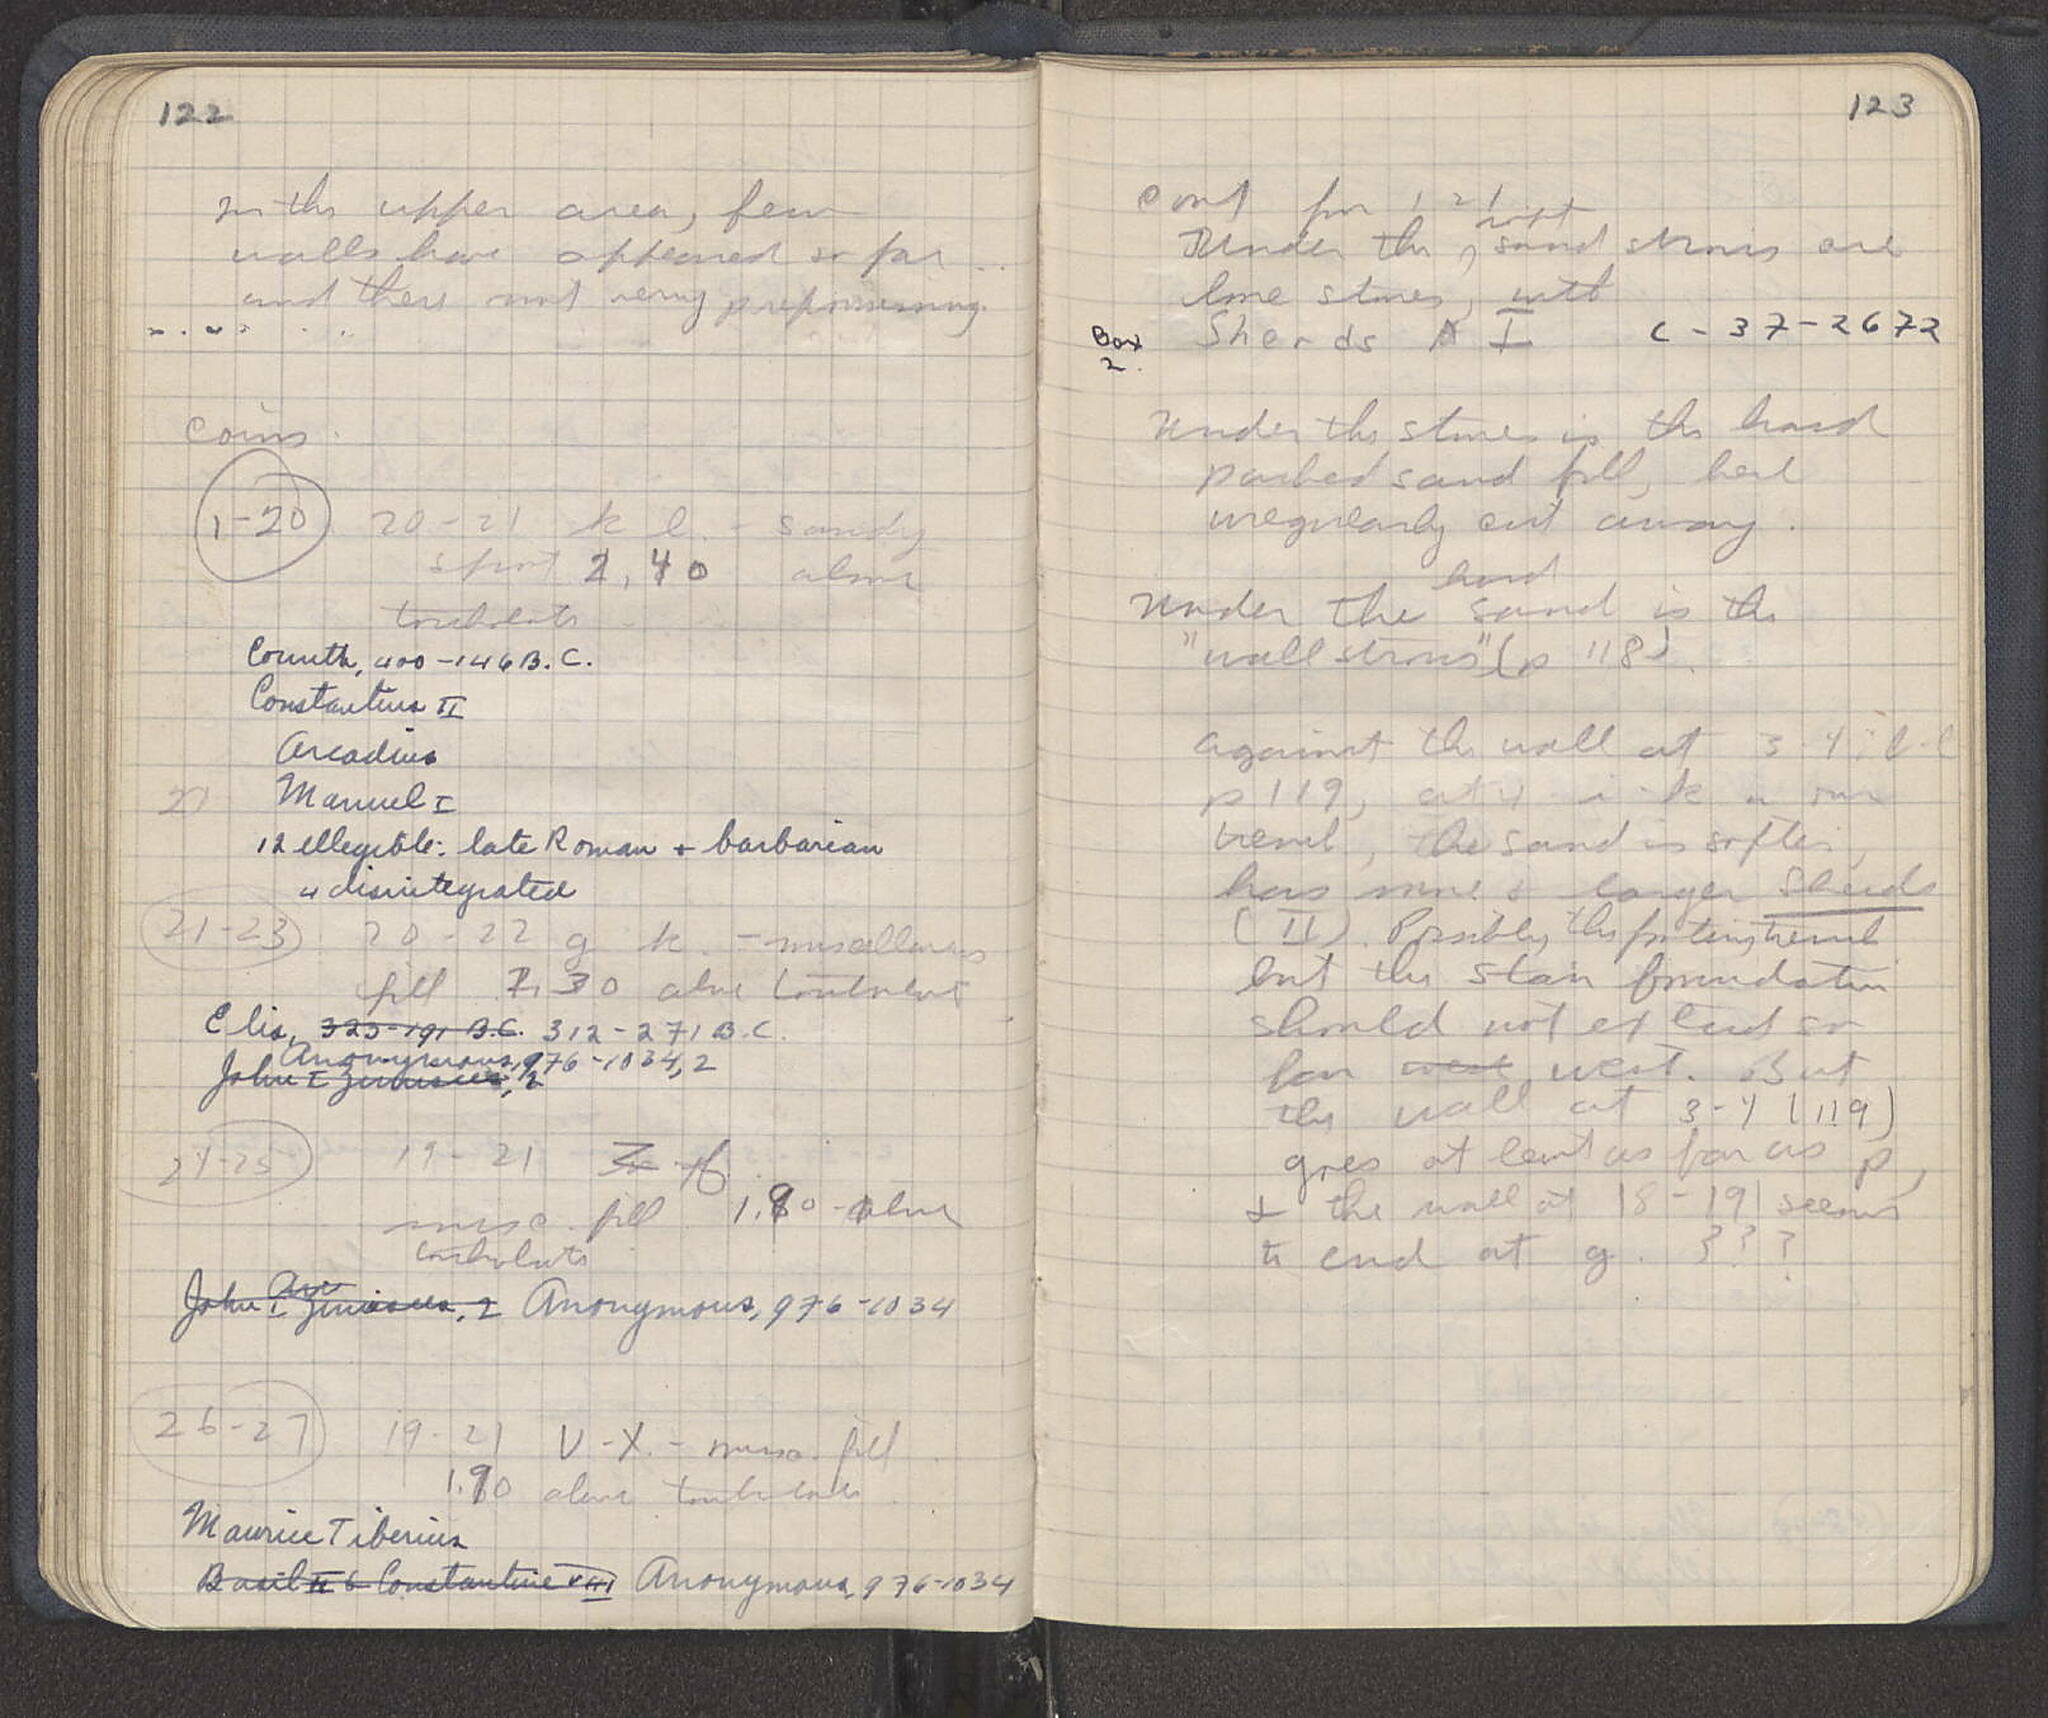 122
In the upper area, few
walls have appeared so far ..
and these not very prepossessing.
coins.
1-20 20-21 k l. - sandy
spot 2,40 above
Corinth, 400-146 B.C.
Constantius II
Arcadius
Manuel I
21
12 illegible: late Roman + barbarian
4 disintegrated
21-23 20-22 g k. - miscellaneous
fill 2,30 above
Elis, 323-191 B.C. 312-271 B.C.
Anonymous, 976-1034, 2
John I Zimisces, 2
24-25 19-21
misc. fill 1.90 - above
John I Zimisces, 2 Anonymous, 976-1034
26-27 19-21 V-X. - misc. fill
1.90 above
Maurice Tiberius
Basil II & Constantine VIII Anonymous, 976-1034
123
cont for 121
soft
Under the, sand stones are
loose stones, with
Box Sherds A I C-37-2672
2.
Under the stones is the hard
packed sand fill, here
irregularly cut away.
hard
Under the sand is the
"wall stones" (p 118).
Against the wall at 3-4
p 119, at 4 i-k in our
trench, the sand is softer,
has more & larger sherds
(II). Possibly the footing trench
but the stair foundation
should not extend so
far west west. But
the wall at 3-4 (119)
goes at least as far as p,
& the wall at 18-19 seems
to end at g. ???